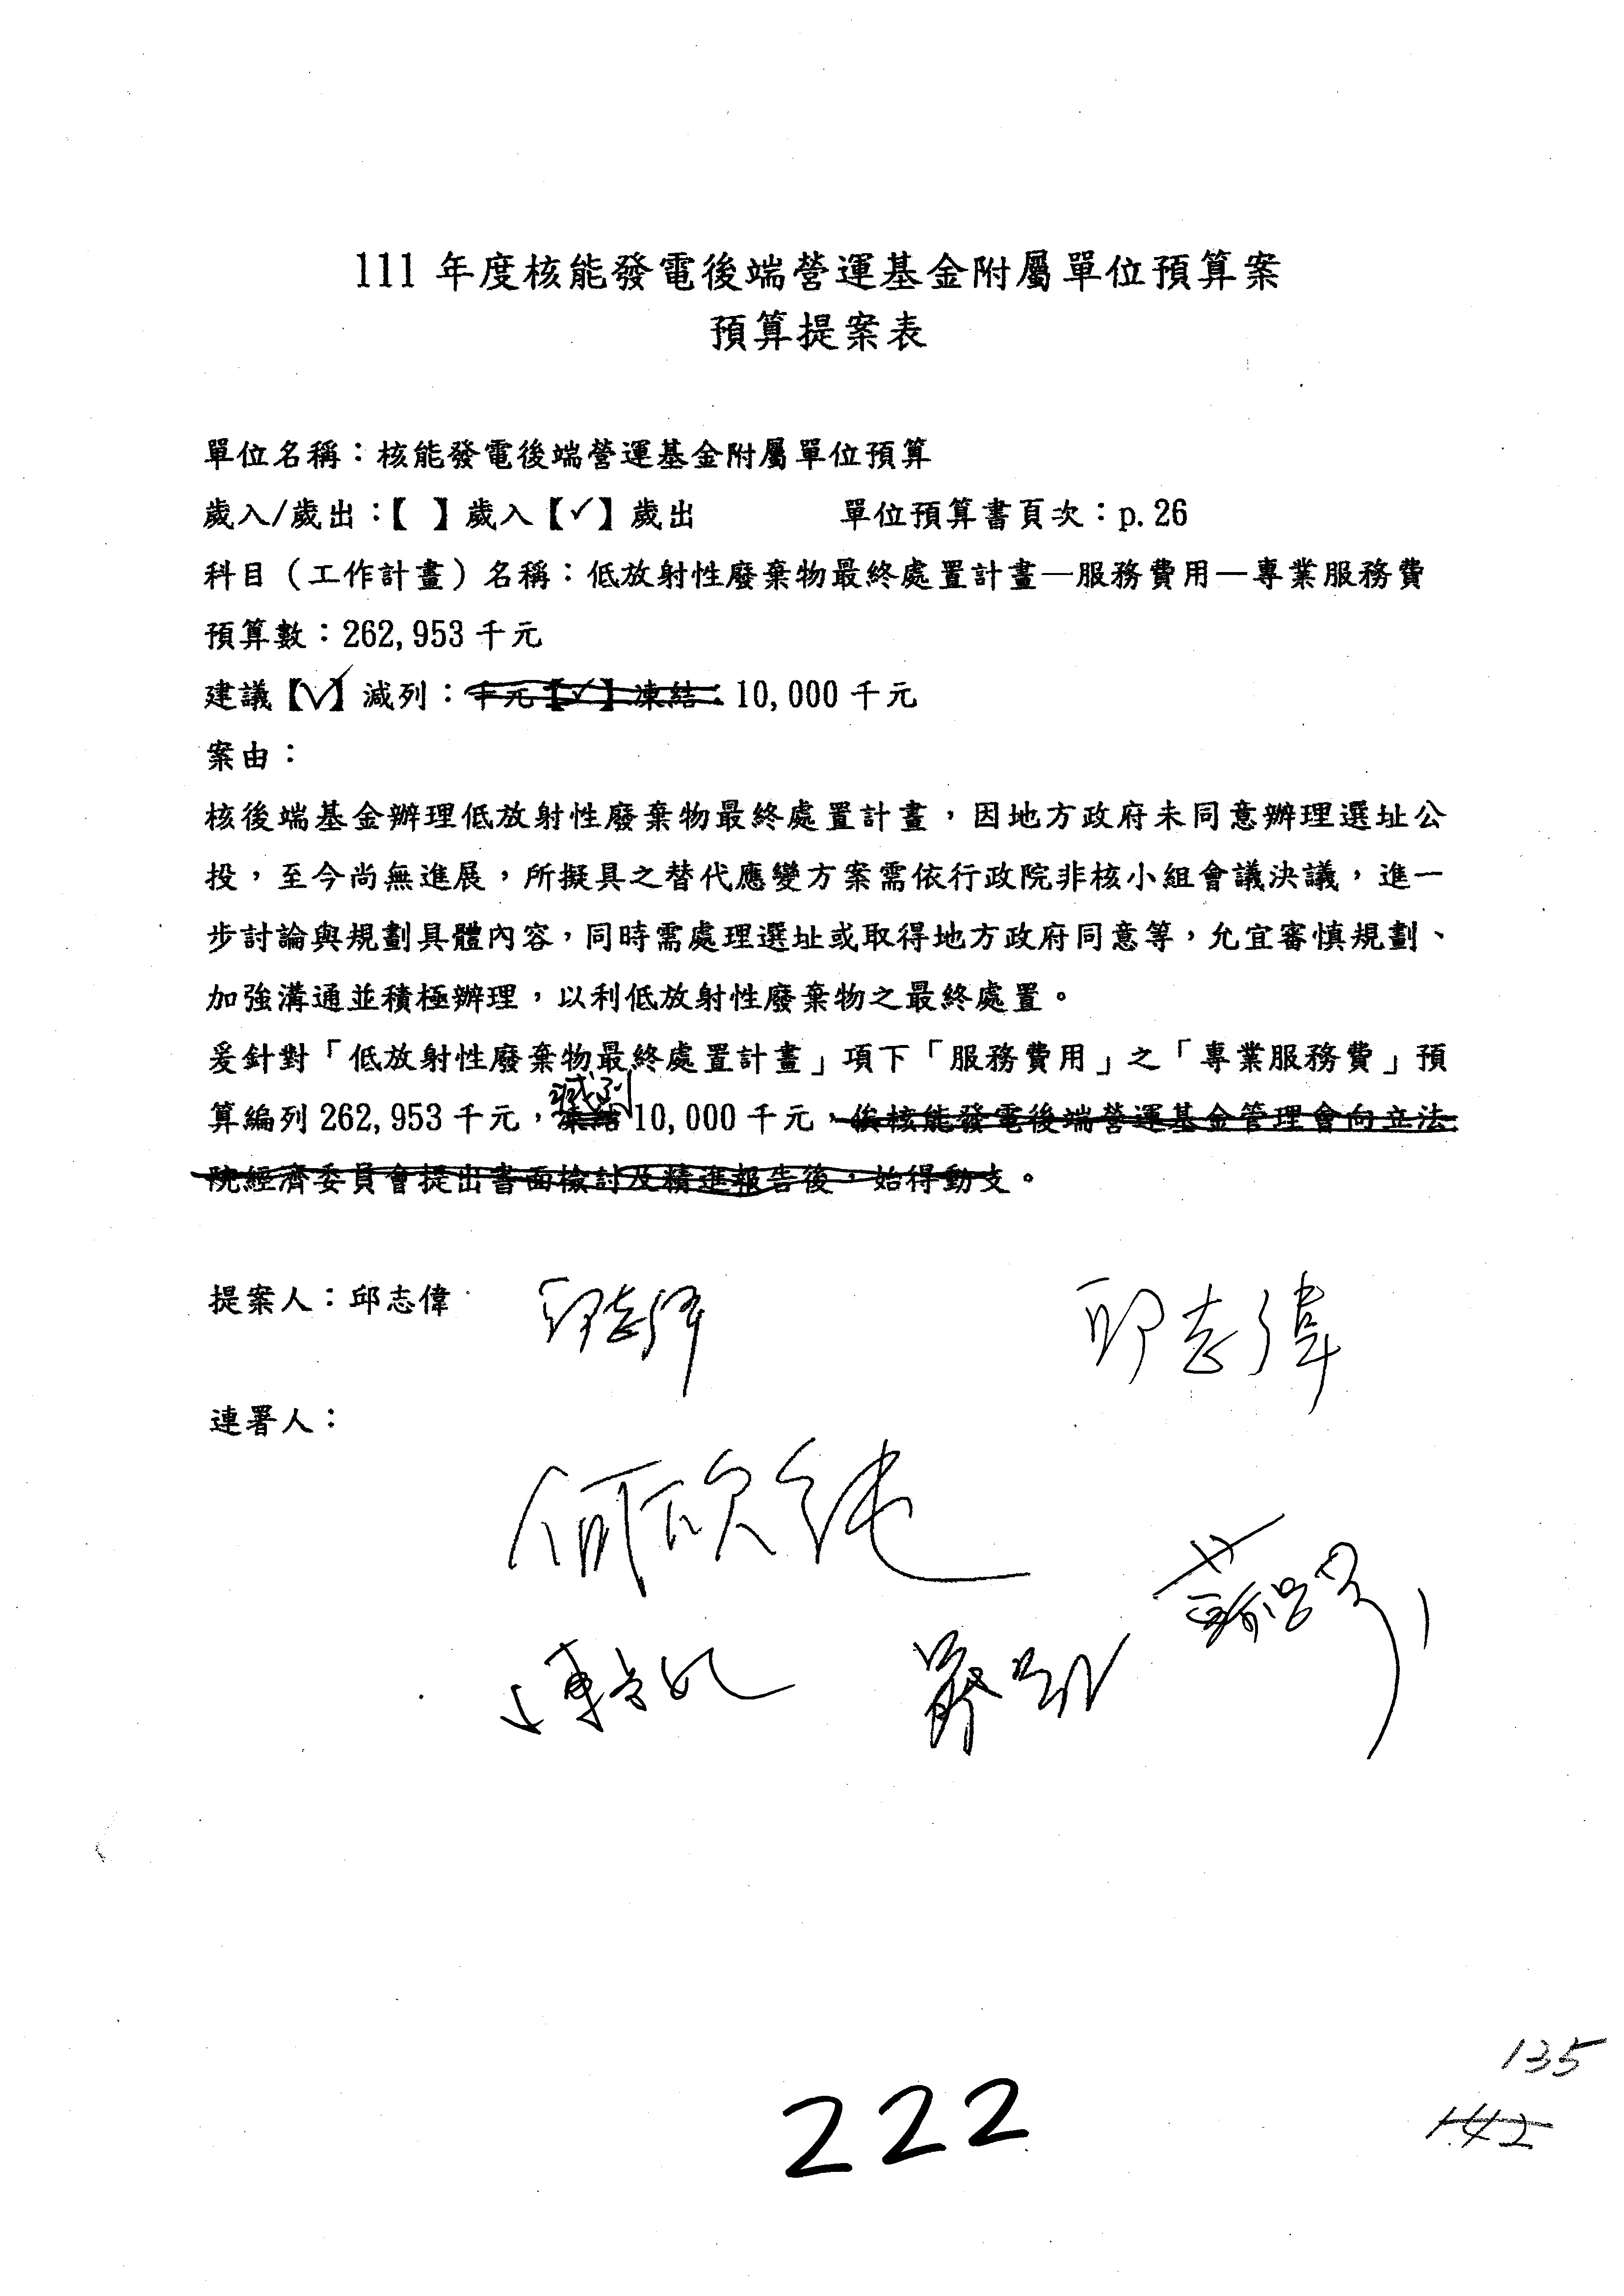 111 年度核能發電後端營運基金附屬單位預算案
預算提案表
單位名稱：核能發電後端營運基金附屬單位預算
歲入/歲出：【 】歲入【✓】歲出 單位預算書頁次：p.26
科目（工作計畫）名稱：低放射性廢棄物最終處置計畫—服務費用—專業服務費
預算數：262,953 千元
建議【✓】減列：千元【✓】凍結：10,000 千元
案由：
核後端基金辦理低放射性廢棄物最終處置計畫，因地方政府未同意辦理選址公
投，至今尚無進展，所擬具之替代應變方案需依行政院非核小組會議決議，進一
步討論與規劃具體內容，同時需處理選址或取得地方政府同意等，允宜審慎規劃、
加強溝通並積極辦理，以利低放射性廢棄物之最終處置。
爰針對「低放射性廢棄物最終處置計畫」項下「服務費用」之「專業服務費」預
減列
算編列 262,953 千元，凍結 10,000 千元，俟核能發電後端營運基金管理會向立法
院經濟委員會提出書面檢討及精進報告後，始得動支。
提案人：邱志偉 邱志偉 邱志偉
連署人：
何欣純
222
135
142